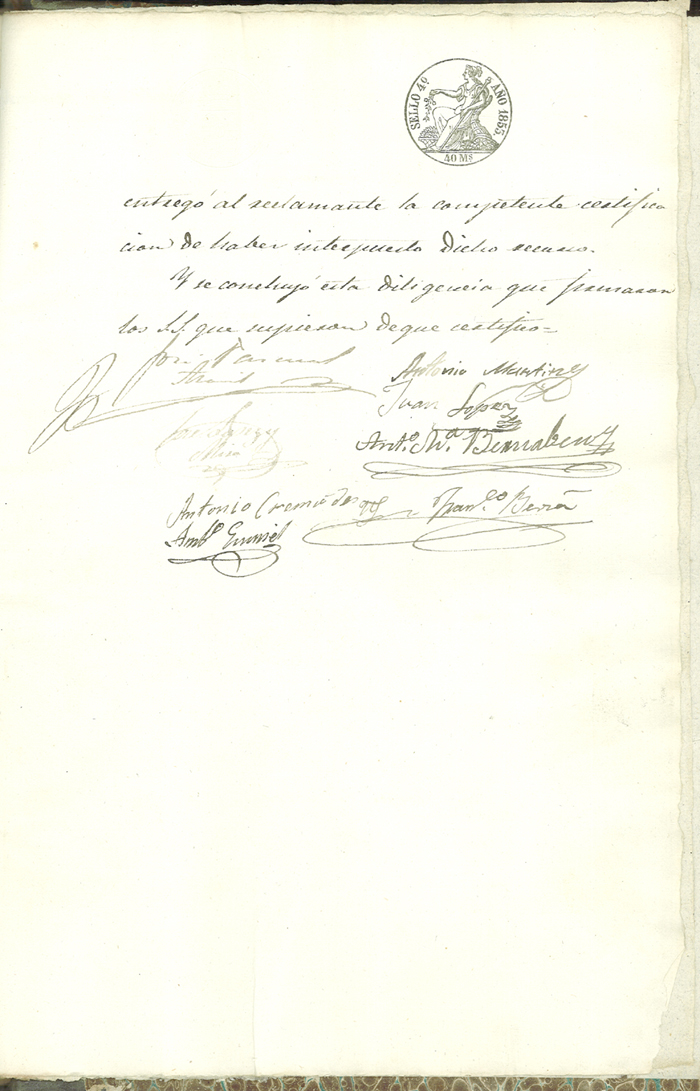 SELLO 4º AÑO 1855.
40 Mˢ
entregó al reclamante la competente certifica
cion de haber interpuesto dicho recurso.
Y se concluyó esta diligencia que firmaron
los S.S. que supieron de que certifico=
José Pascual
Antonio Martinez
Juan Lopez
Antº. Mª Bernabeu
Antonio Cremades
Franº
Antº